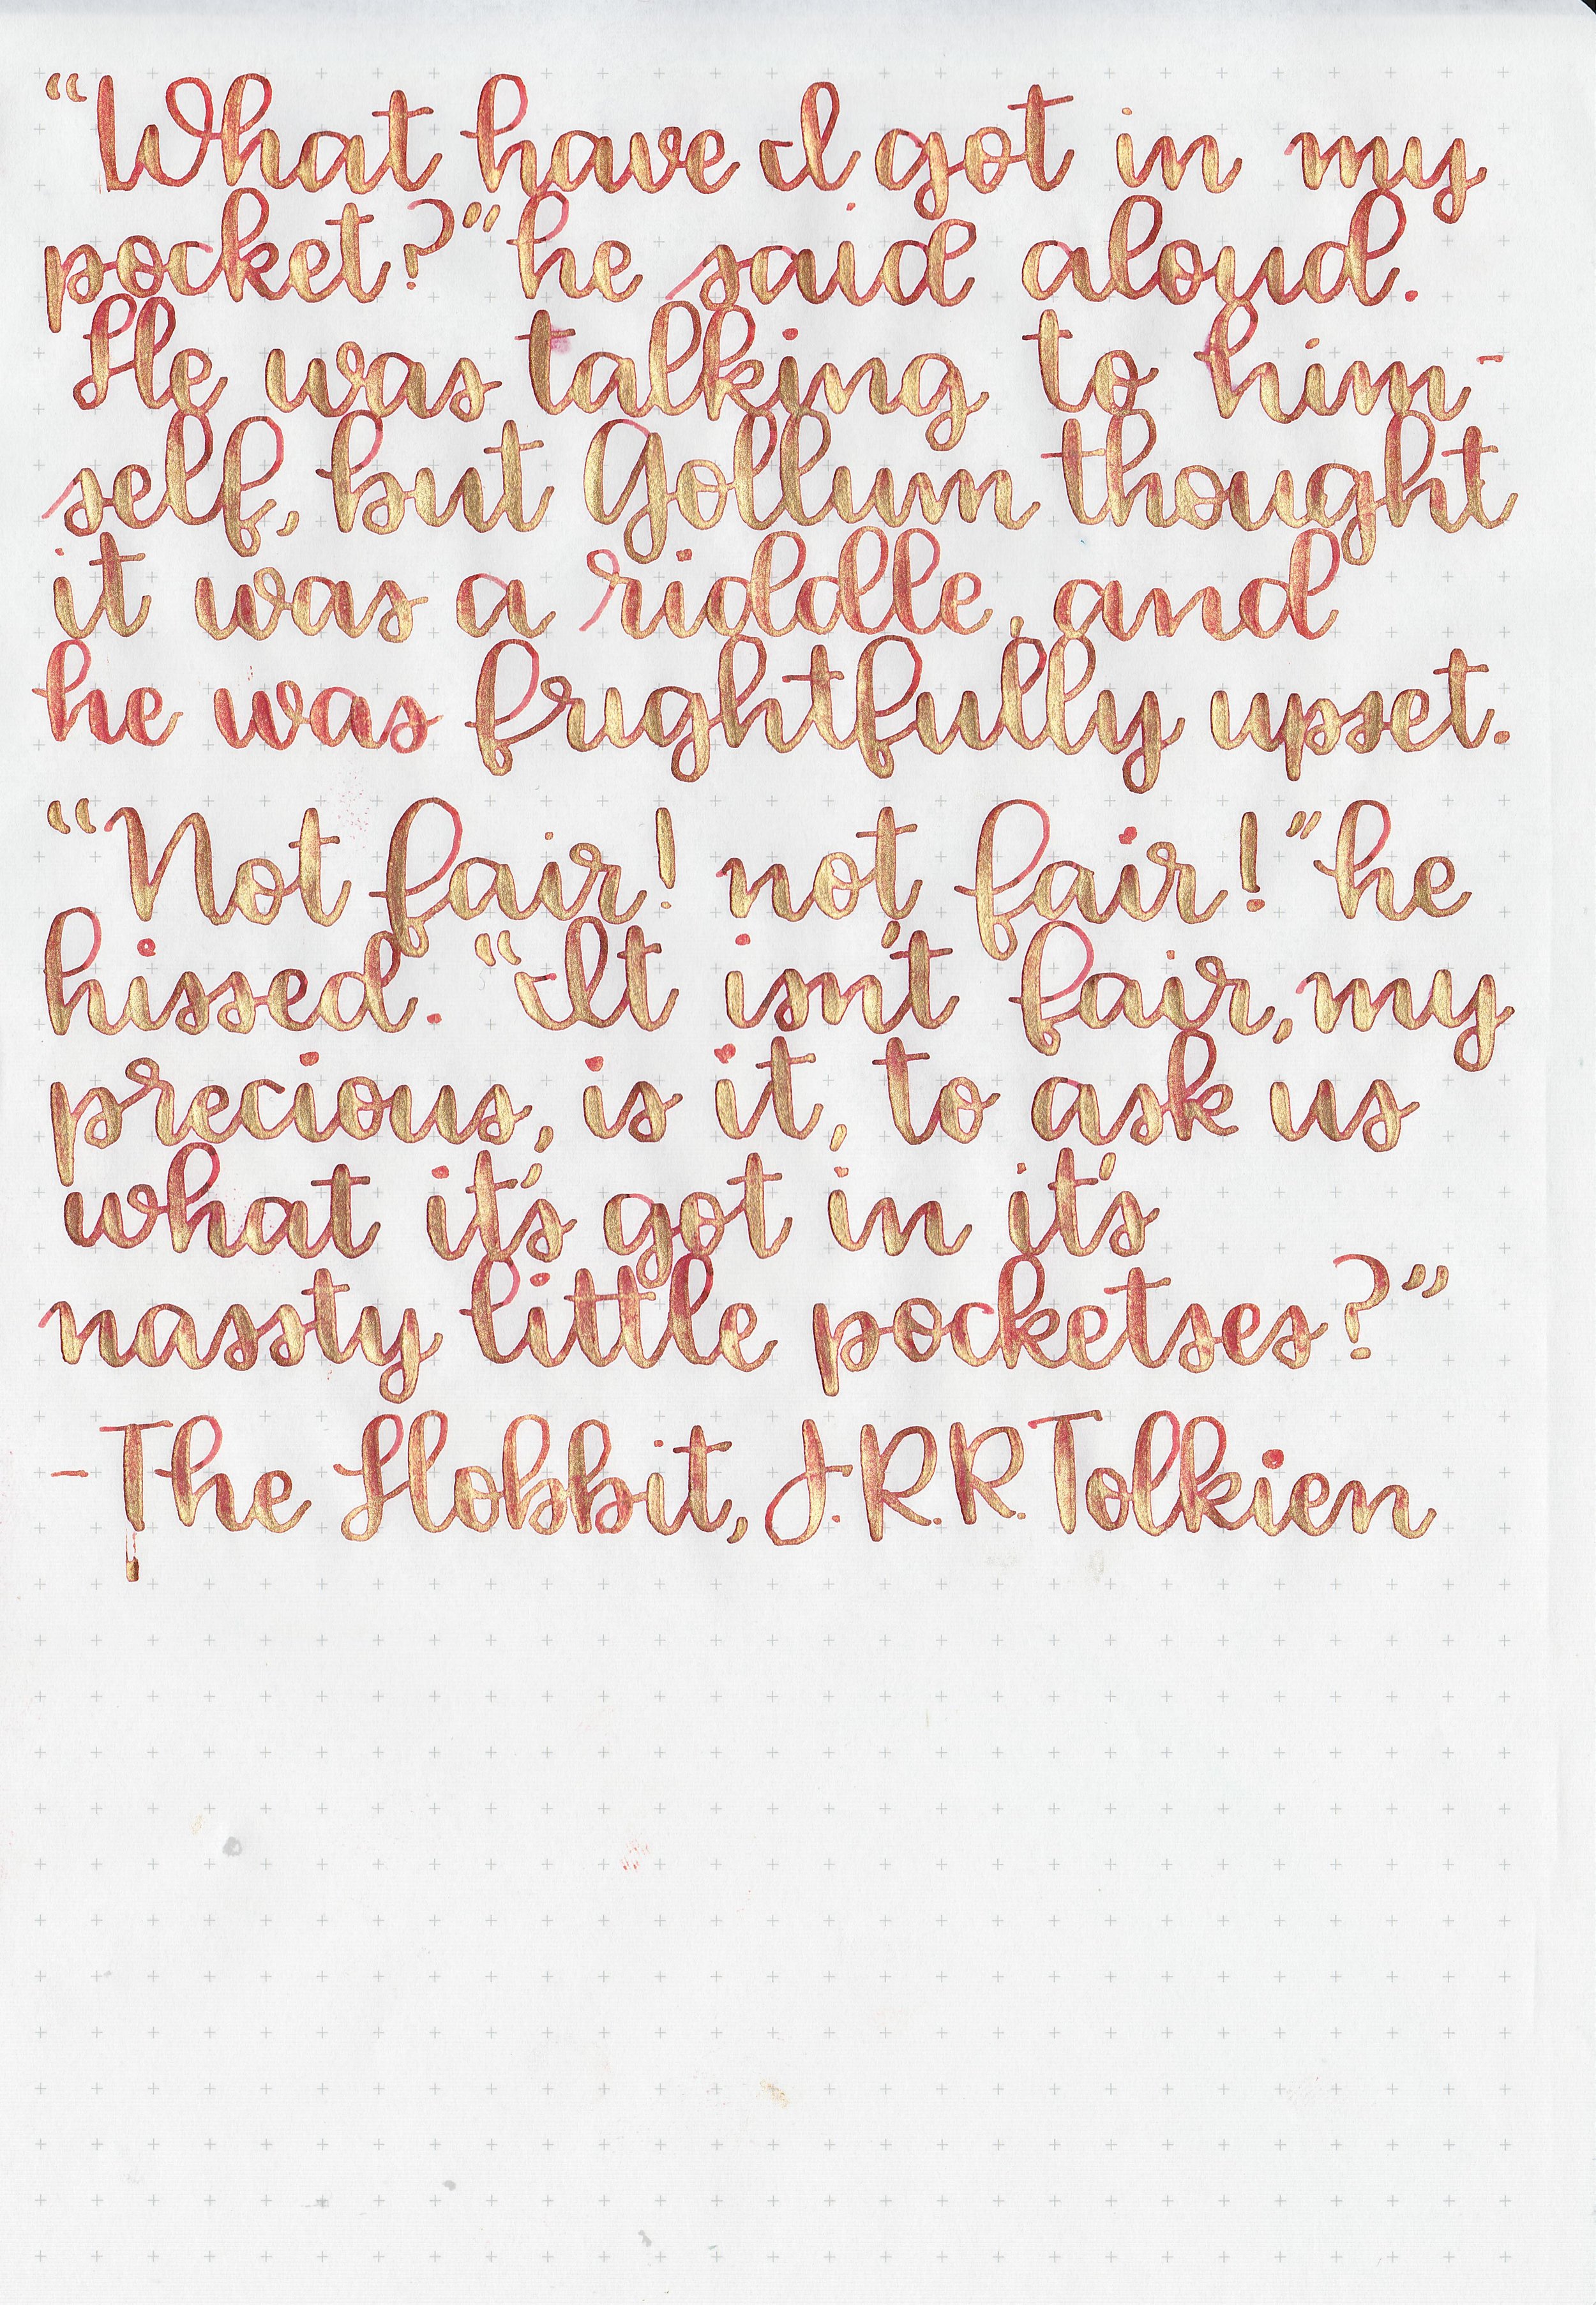 “What have I got in my
pocket?” he said aloud.
He was talking to him-
self, but Gollum thought
it was a riddle, and
he was frightfully upset.
“Not fair! not fair!” he
hissed. “It isn't fair, my
precious, is it, to ask us
what it's got in it's
nassty little pocketses?”
-The Hobbit, J.R.R. Tolkien